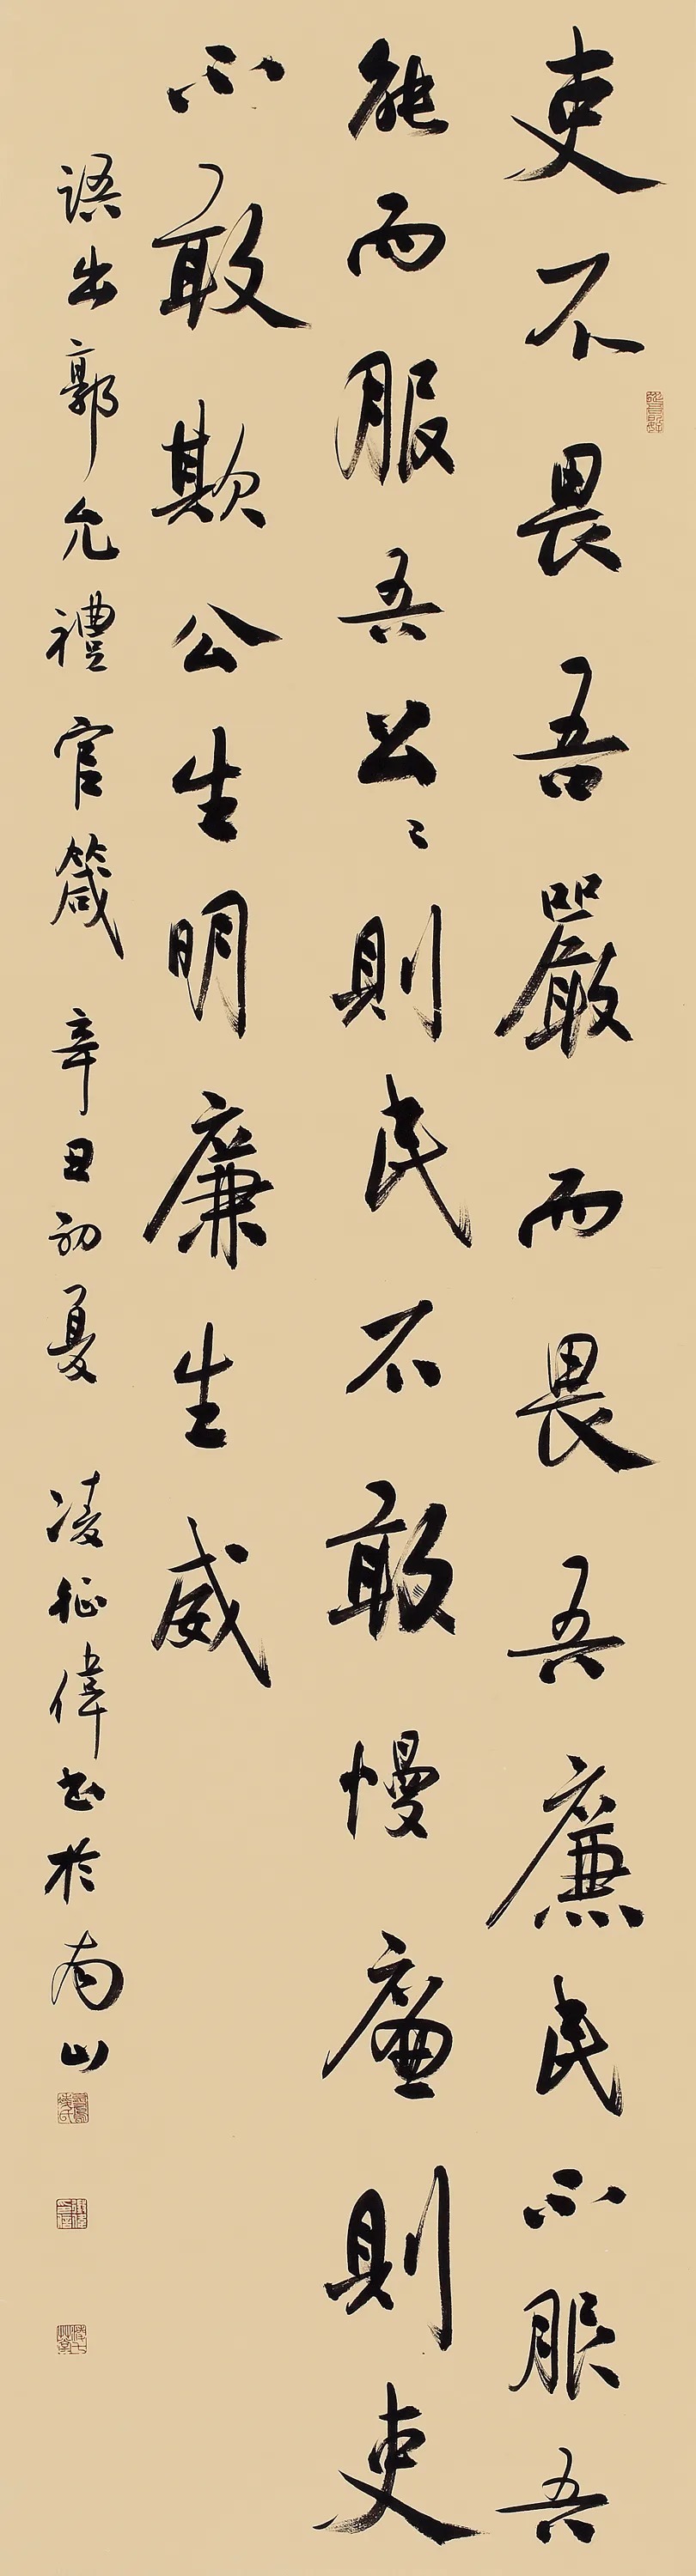 吏不畏吾嚴而畏吾廉民不服吾
能而服吾公〻則民不敢慢廉則吏
不敢欺公生明廉生威
語出郭允禮官箴 辛丑初夏 凌征偉书於南山